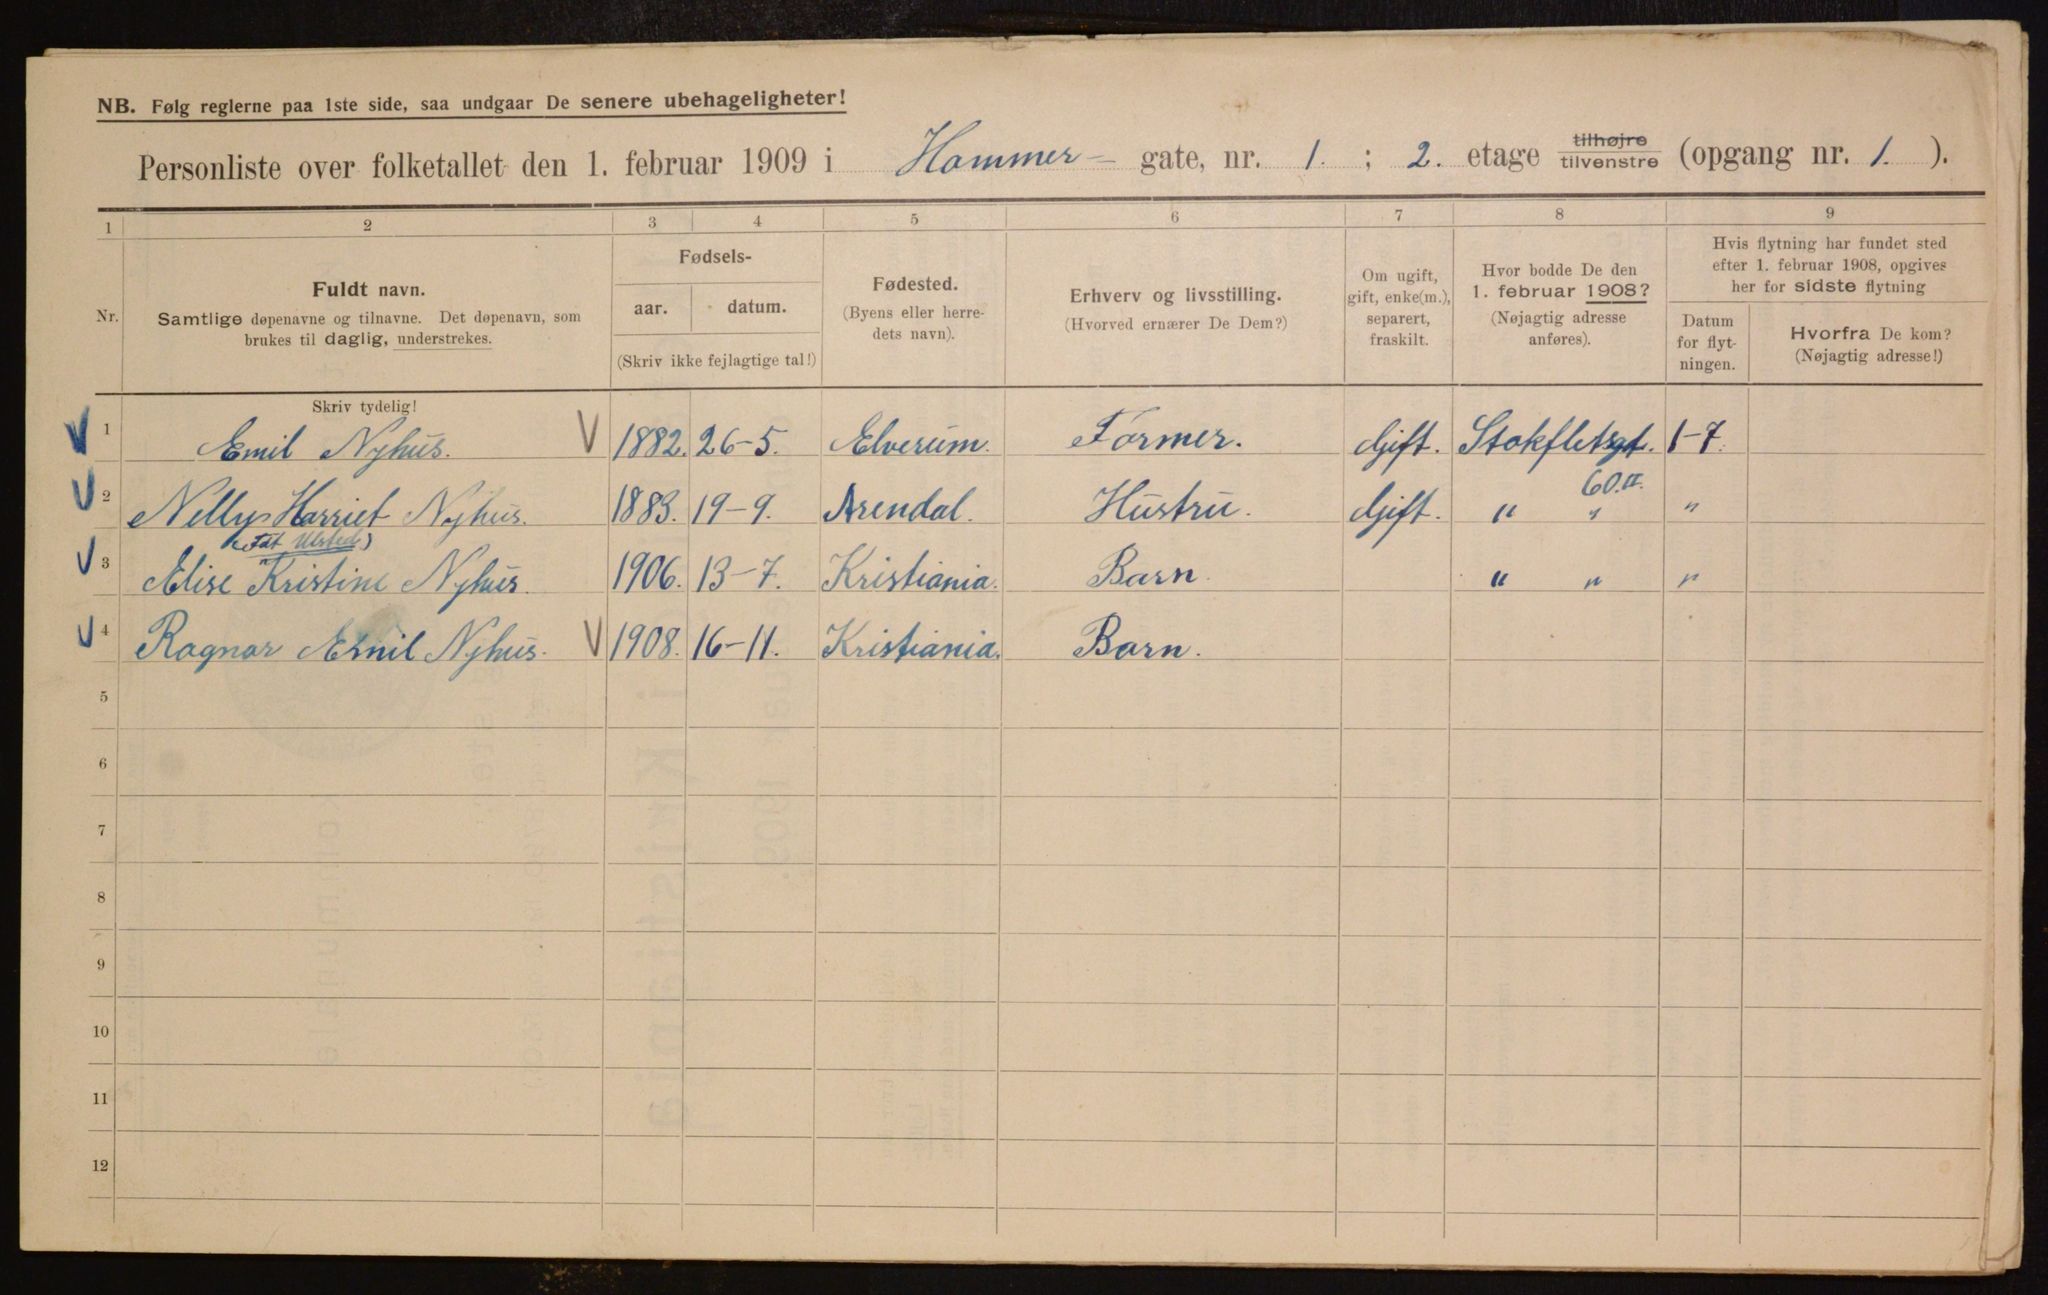 NB. Følg reglerne paa 1ste side, saa undgaar De senere ubehageligheter!
Personliste over folketallet den 1. februar 1909 i Hammer- gate, nr. 1. ; 2. etage tilhøjre tilvenstre (opgang nr. 1. ).
1 2 3 4 5 6 7 8 9
Nr.
Fuldt navn.
Samtlige døpenavne og tilnavne. Det døpenavn, som
brukes til daglig, understrekes.
Fødsels-
aar. datum.
(Skriv ikke fejlagtige tal!)
Fødested.
(Byens eller herre-
dets navn).
Erhverv og livsstilling.
(Hvorved ernærer De Dem?)
Om ugift,
gift, enke(m.),
separert,
fraskilt.
Hvor bodde De den
1. februar 1908?
(Nøjagtig adresse
anføres).
Hvis flytning har fundet sted
efter 1. februar 1908, opgives
her for sidste flytning
Datum
for flyt-
ningen.
Hvorfra De kom?
(Nøjagtig adresse!)
Skriv tydelig!
1 Emil Nyhus. V 1882. 26-5. Elverum. Former. Gift. Stokfletsgt. 1-7.
60.II.
2 Nelly Harriet Nyhus. 1883. 19-9. Arendal. Hustru. Gift. " " "
(Føt Ulsted)
3 Elise Kristine Nyhus. 1906. 13-7. Kristiania. Barn. " " "
4 Ragnar Emil Nyhus. V 1908. 16-11. Kristiania. Barn.
5
6
7
8
9
10
11
12